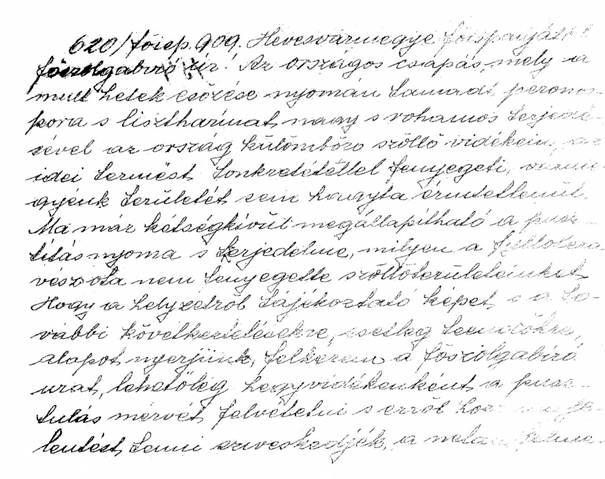 620/főisp. 909. Hevesvármegye főispánjától
főszolgabíró úr! Az országos csapás, mely a
mult hetek esőzése nyomán támadt perenos-
pora s lisztharmat nagy s rohamos terjedé-
sével az ország külömböző szöllő vidékein, az
idei termést tönkretétellel fenyegeti, várme-
gyénk területét sem hagyta érintetlenül.
Ma már kétségkívül megállapítható a pusz-
títás nyoma s terjedelme, milyen a fillokszera
vész óta nem fenyegette szöllőterületeinket.
Hogy a helyzetről tájékoztató képet, s a to-
vábbi következtetésekre, esetleg teendőkre,
alapot nyerjünk, felkérem a főszolgabíró
urat, lehetőleg hegyvidékenként a pusz-
tulás mérvét felvétetni s erről je-
lentést tenni sziveskedjék, a